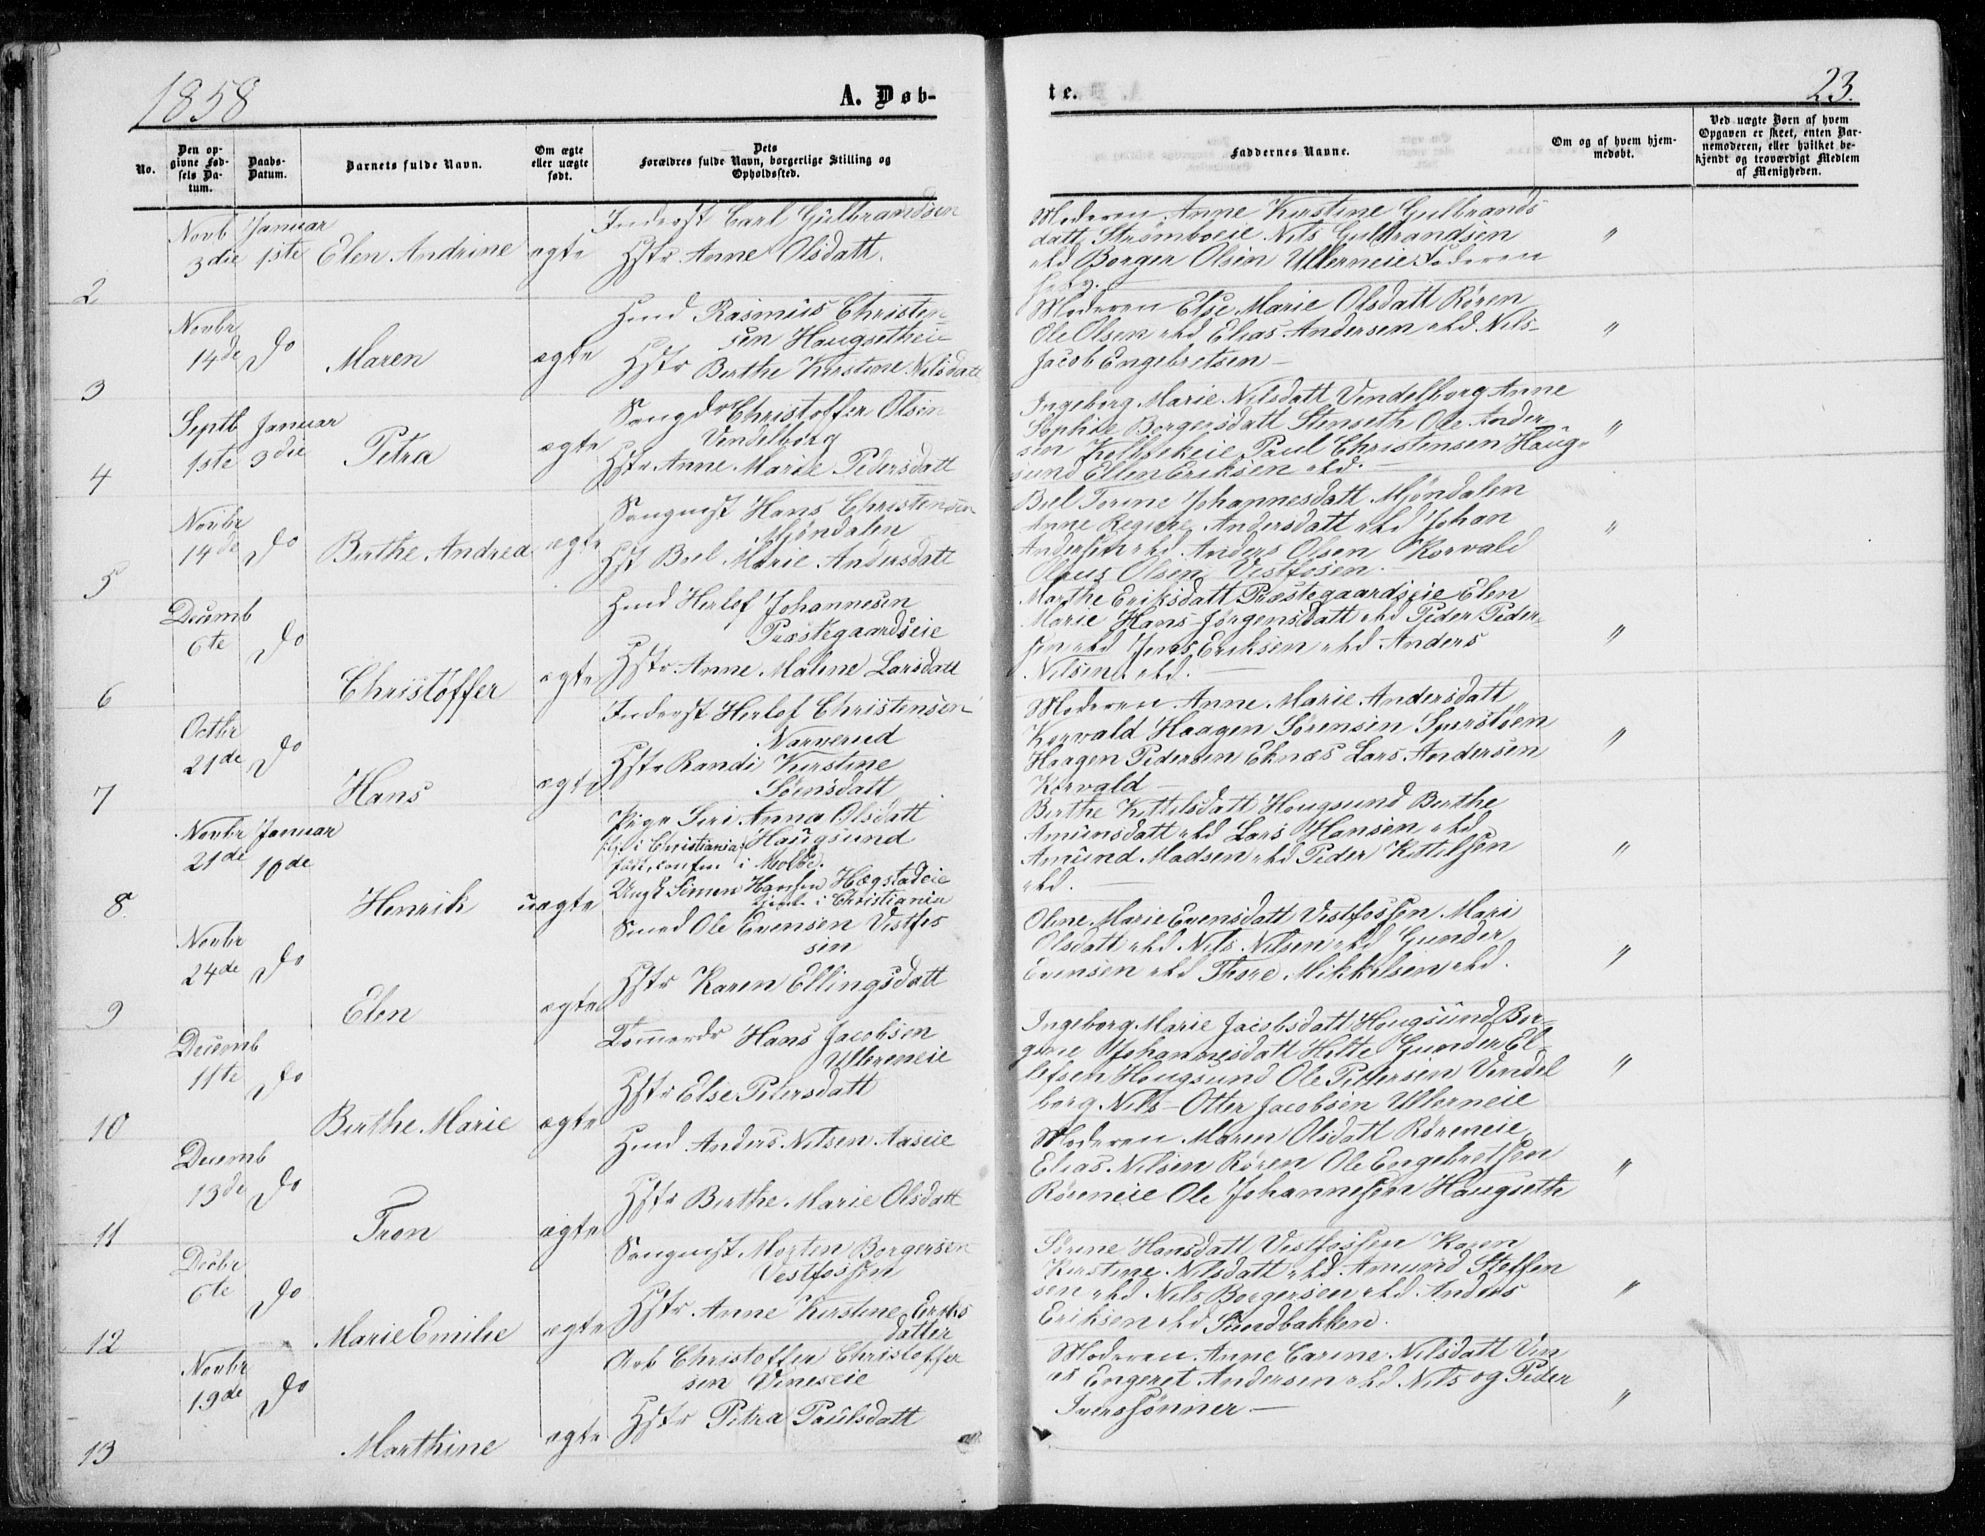 1858
A. Døb-
te.
23.
No.
Den op-
givne Fød-
sels Da-
tum.
Daabs-
Datum.
Barnets fulde Navn.
Om ægte
eller uægte
født.
Dets
Forældres fulde Navn, borgerlige Stilling og
Opholdssted.
Faddernes Navne.
Om og af hvem hjem-
medøbt.
Ved uægte Børn af hvem
Opgaven er skeet, enten Bar-
nemoderen, eller hvilket be-
kjendt og troværdigt Medlem
af Menigheden.
2
Novb
3die
Januar
1ste
Elen Andrine
ægte
Inderst Carl Gulbrandsen
Hstr Anne Olsdatt.
Moderen Anne Kirstine Gulbrands
datt Strømboeie Nils Gulbrandsen
Borger Olsen Ullerneie Faderen
"
3
Novbr
14de
do
Maren
ægte
Hmd Rasmus Christen
sen Haugsetheie
Hstr Berthe Kirstine Nilsdatt
Moderen Else Marie Olsdatt Røren
Ole Olsen Elias Andersen Nils
Jacob Engebretsen
"
4
Septb
1ste
Januar
3die
Petra
ægte
Christoffer Olsen
Vendelborg
Hstr Anne Marie Pedersdatt
Ingeborg Marie Nilsdatt Vendelborg Anne
Sophie Borgersdatt Stenseth Ole Ander
sen Paul Christensen Haug-
sund Ellen Eriksen
"
5
Novbr
14de
do
Berthe Andrea
ægte
Hans Christensen
Mjøndalen
Hst Bel Marie Andersdatt
Bel Torine Johannesdatt Mjøndalen
Anne Andersdatt Johan
Andersen Anders Olsen Korvald
Olaus Olsen Vestfosen
"
6
Decemb
6te
do
Christoffer
ægte
Hmd Herlof Johannesen
Præstegaardseie
Hstr Anne Maline Larsdatt
Marthe Eriksdatt Præstegaardseie Elen
Marie Hans Jørgensdatt Peder Peder
sen Jens Eriksen Anders
Nilsen
"
7
Octbr
21de
do
Hans
ægte
Inderst Herlof Christensen
Narverud
Hstr Randi Kirstine
Sørensdatt
Moderen Anne Marie Andersdatt
Korvald Haagen Sørensen
Haagen Pedersen Eknæs Lars Andersen
Korvald
"
8
Novbr
21de
Januar
10de
Henrik
uægte
Pige Siri Anna Olsdatt
i Christiania Haugsund
i Molde.
Ungk Simen Hansen Hægstadeie
i Christiania
Berthe Kittilsdatt Hougsund Berthe
Amunsdatt Lars Hansen
Amund Madsen Peder Kittilsen
"
9
Novbr
24de
do
Elen
ægte
Smed Ole Evensen Vestfos
sen
Hstr Karen Ellingsdatt
Oline Marie Evensdatt Vestfossen Mari
Olsdatt Nils Nilsen Gunder
Evensen Thore Mikkelsen
"
10
Decemb
11te
do
Berthe Marie
ægte
Hans Jacobsen
Ullerneie
Hstr Else Petersdatt
Ingeborg Marie Jacobsdatt Hougsund Bor-
gine Johannesdatt Helte Gunder El-
lefsen Hougsund Ole Pettersen Vendel
borg Nils Otter Jacobsen Ullerneie
"
11
Decemb
13de
do
Tron
ægte
Hmd Anders Nilsen Aaseie
Hstr Berthe Marie Olsdatt
Moderen Maren Olsdatt Røreneie
Elias Nilsen Røren Ole Engebretsen
Røreneie Ole Johannesen Haugseth
"
12
Decbr
6te
do
Marie Emilie
ægte
Morten Borgersen
Vestfossen
Hstr Anne Kirstine Eriks
datter
Sørine Hansdatt Vestfossen Karen
Kirstine Nilsdatt Amund Steffen
sen Nils Borgersen Anders
Eriksen Sundbakken.
"
13
Novbr
19de
do
Marthine
ægte
Arb Christoffer Christoffer
sen Vineseie
Hstr Petra Paulsdatt
Moderen Anne Carine Nilsdatt Vin
es Engeret Andersen Nils og Peder
Iverssønner
"